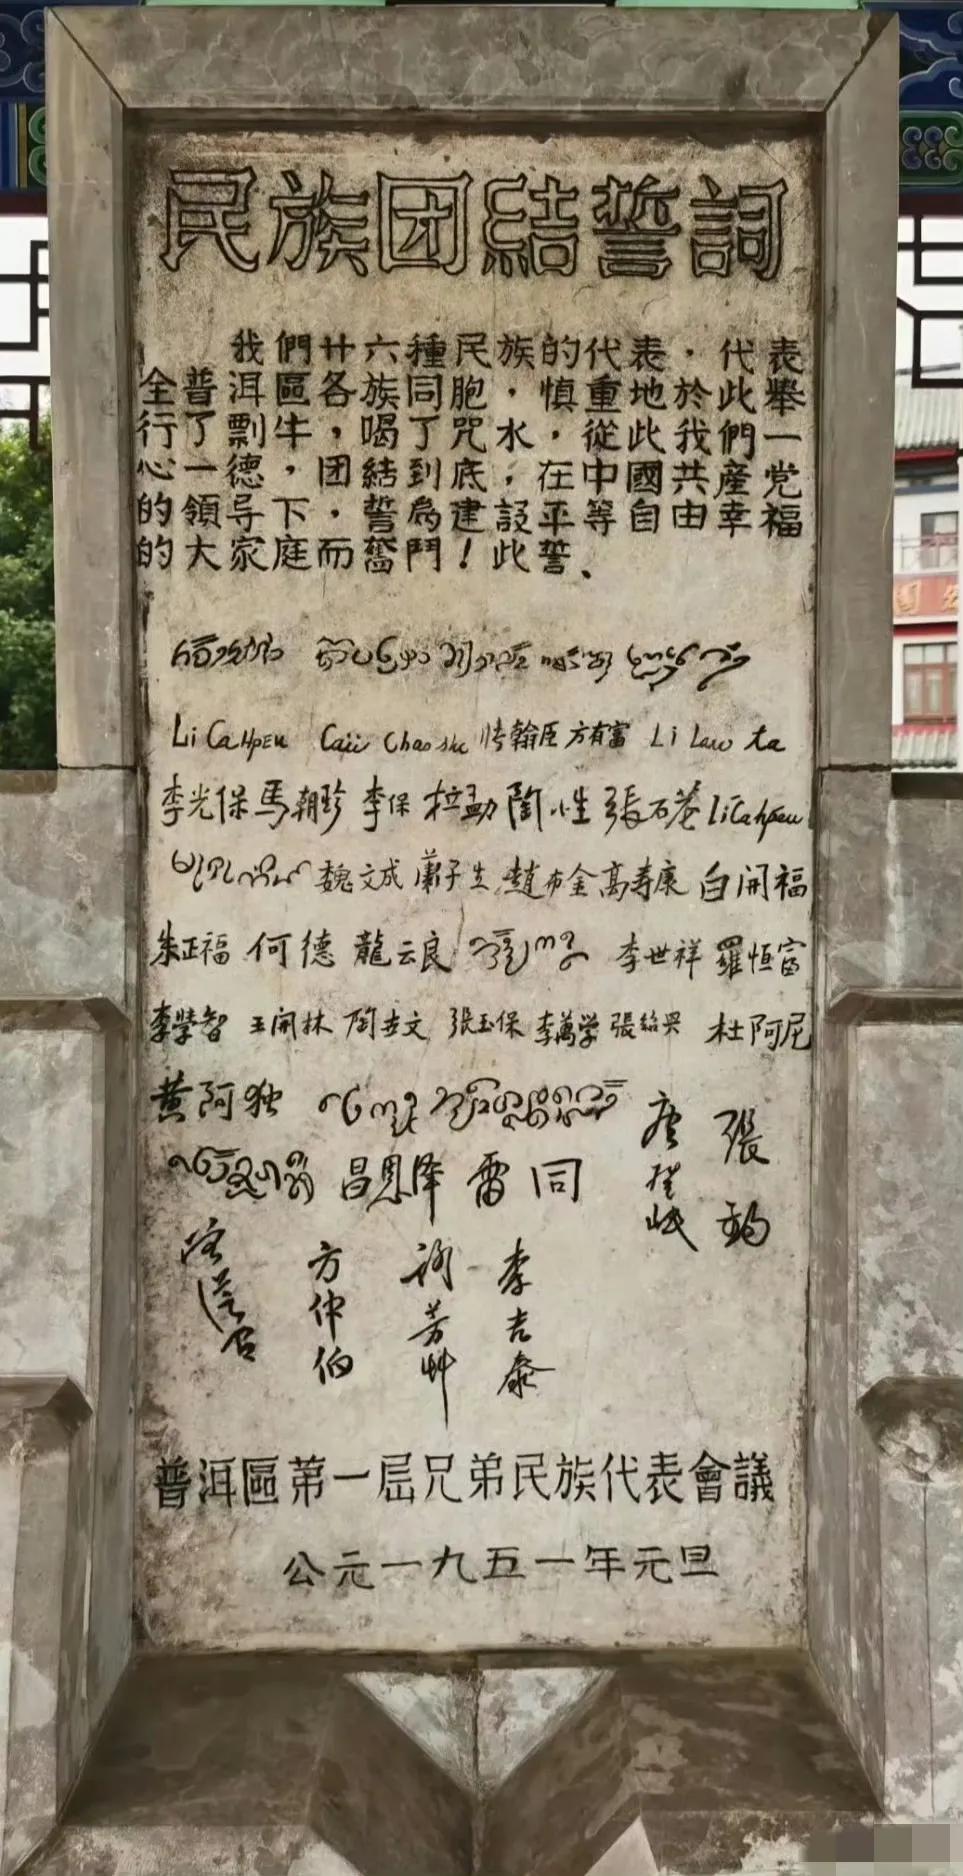 民族团結誓詞
我們廿六種民族的代表，代表
全普洱區各族同胞，慎重地於此舉
行了剽牛，喝了咒水，從此我們一
心一德，团結到底，在中國共產党
的領导下，誓為建設平等自由幸福
的大家庭而奮鬥！此誓、
Li Cahpeu 翰臣 方有富 Li Law ta
李光保 馬朝珍 李保 拉勐 張石菴 LiCahpeu
魏文成 蕭子生 趙布金 高寿康 白開福
朱正福 何德 龍云良 李世祥 羅恒富
李學智 王開林 張玉保 李萬学 張紹興 杜阿尼
黄阿独
昌恩泽 雷同
唐登岷
張鈞
方仲伯
李吉泰
普洱區第一屆兄弟民族代表會議
公元一九五一年元旦